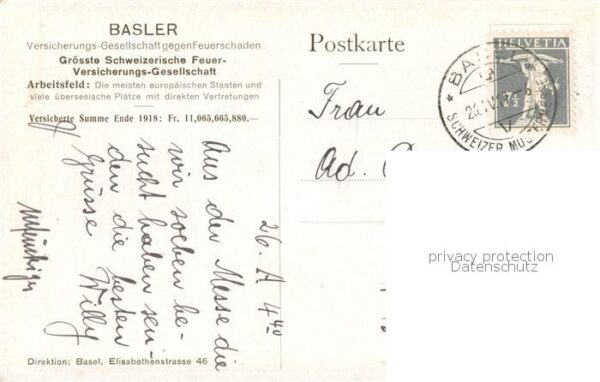 BASLER
Versicherungs-Gesellschaft gegen Feuerschaden
Grösste Schweizerische Feuer-
Versicherungs-Gesellschaft
Arbeitsfeld: Die meisten europäischen Staaten und
viele überseeische Plätze mit direkten Vertretungen
Versicherte Summe Ende 1918: Fr. 11,065,665,880.—
Postkarte
HELVETIA
7½
BA
SCHWEIZER MUSTER
Frau
Ad.
26. A 4⁴⁰
Aus der Messe die
wir soeben be-
sucht haben sen-
den die besten
Grüsse Willy
privacy protection
Datenschutz
Direktion: Basel, Elisabethenstrasse 46